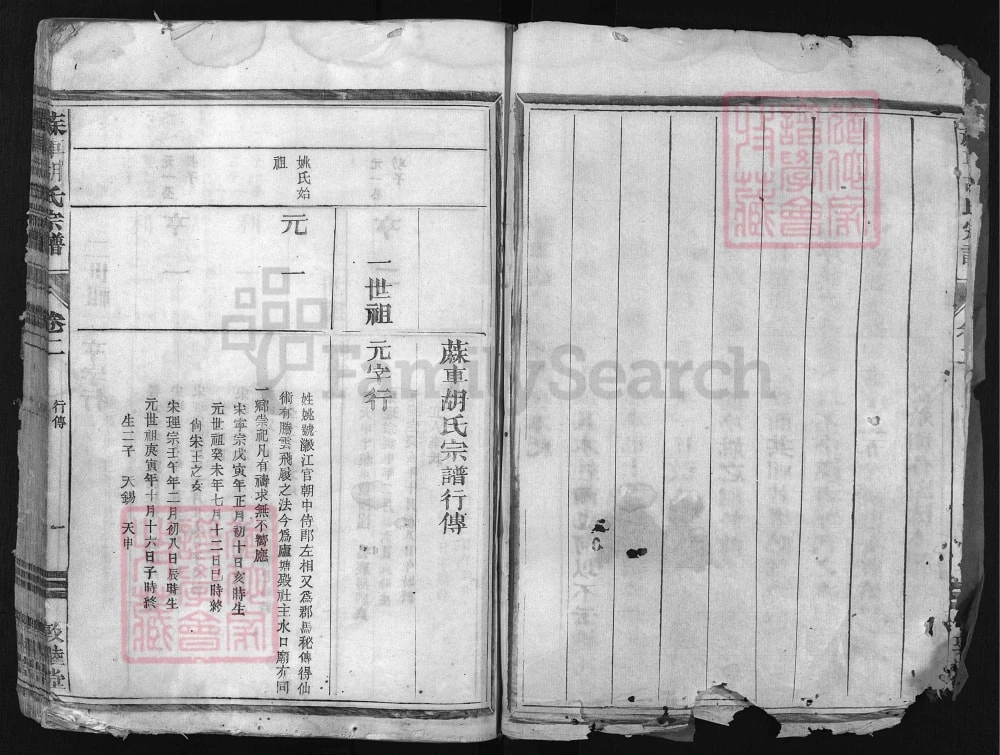 蔴車胡氏宗譜行傳
一世祖 元字行
姚氏始
祖
元一
姓姚號瀫江官朝中侍郎左相又爲郡馬秘傳得仙
術有騰雲飛屐之法今爲廬塘殿社主水口廟亦同
一鄉崇祀凡有禱求無不響應
宋寧宗戊寅年正月初十日亥時生
元世祖癸未年七月十二日巳時終
尙宋王之女
宋理宗壬午年二月初八日辰時生
元世祖庚寅年十月十六日子時終
生二子 天錫 天申
蔴車胡氏宗譜
卷二
行傳
一
敦睦堂
FamilySearch